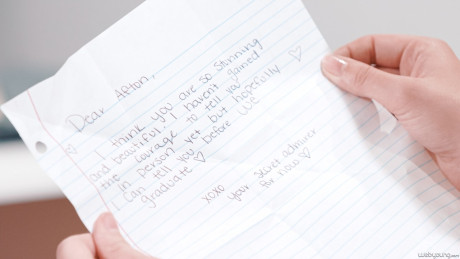 Dear Afton,
I think you are so stunning
and beautiful. I haven't gained
the corage to tell you
in person yet but hopefully
I can tell you before we
graduate ♡
xoxo
your secret admirer
for now ♡